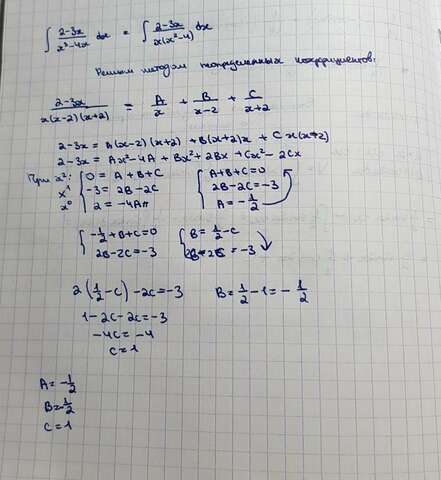 ∫ (2-3x)/(x³-4x) dx = ∫ (2-3x)/(x(x²-4)) dx
Решим методом неопределенных коэффициентов.
(2-3x)/(x(x-2)(x+2)) = A/x + B/(x-2) + C/(x+2)
2-3x = A(x-2)(x+2) + B(x+2)x + C x(x-2)
2-3x = Ax²-4A + Bx²+2Bx + Cx² - 2Cx
При x²: { 0 = A+B+C { A+B+C=0
x¹ { -3 = 2B-2C { 2B-2C=-3
x⁰ { 2 = -4A { A = -1/2
{ -1/2+B+C=0 { B = 1/2-C
{ 2B-2C=-3 { 2B-2C=-3
2(1/2-C) -2C=-3 B = 1/2-1 = -1/2
1-2C-2C=-3
-4C=-4
C=1
A=-1/2
B=-1/2
C=1